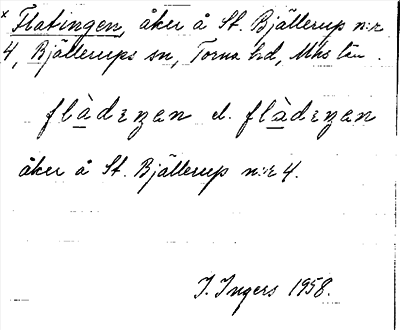 x Flatingen, åker å St. Bjällerup n:r
4, Bjällerups sn, Torna hd, Mhs län.
flàdɛŋan el. flàdɛŋan
åker å St. Bjällerup n:r 4.
I. Ingers 1958.